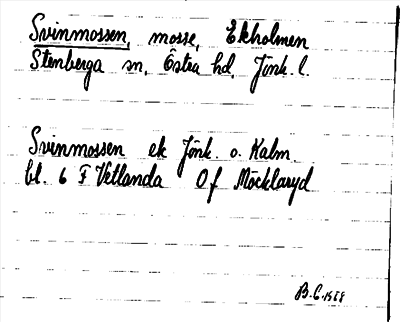 Svinmossen, mosse, Ekholmen
Stenberga sn, Östra hd, Jönk. l.
Svinmossen ek Jönk. o. Kalm.
bl. 6 F Vetlanda Of Möcklaryd
B.G. 1958